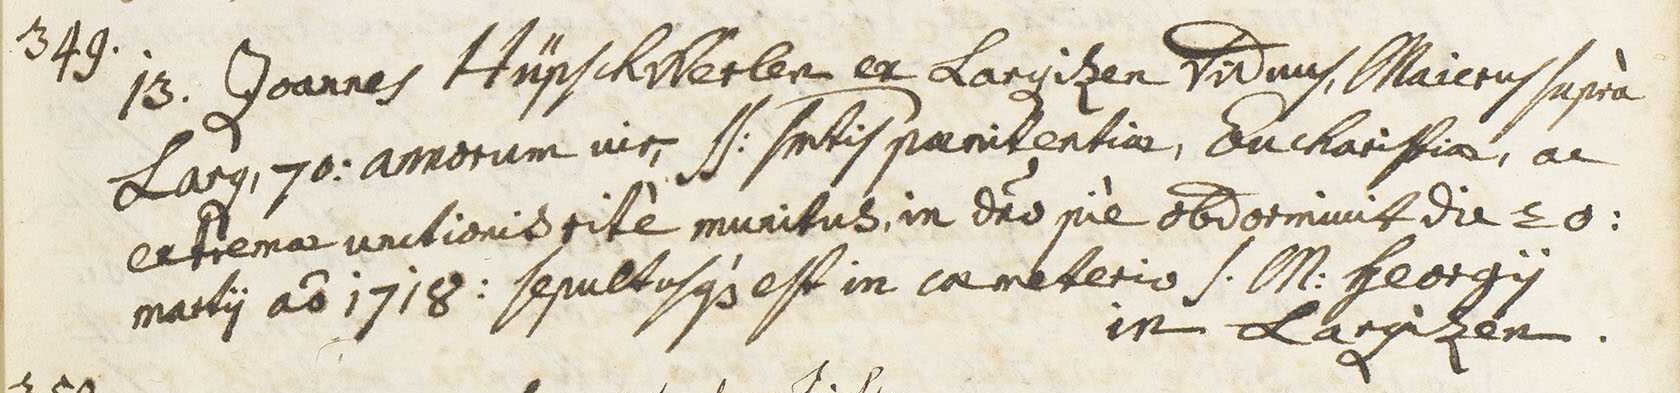 349.
13. Joannes Hüpschwerlen ex Largitzen viduus, Maierus suprà
Larg, 70: annorum vir, SS: sm̃tis pœnitentiæ, Eucharistiæ, ac
extremæ unctionis ritè munitus, in dño piè obdormivit die 20:
martij aõ 1718: sepultusq; est in cœmeterio S. M: Georgij
in Largitzen.